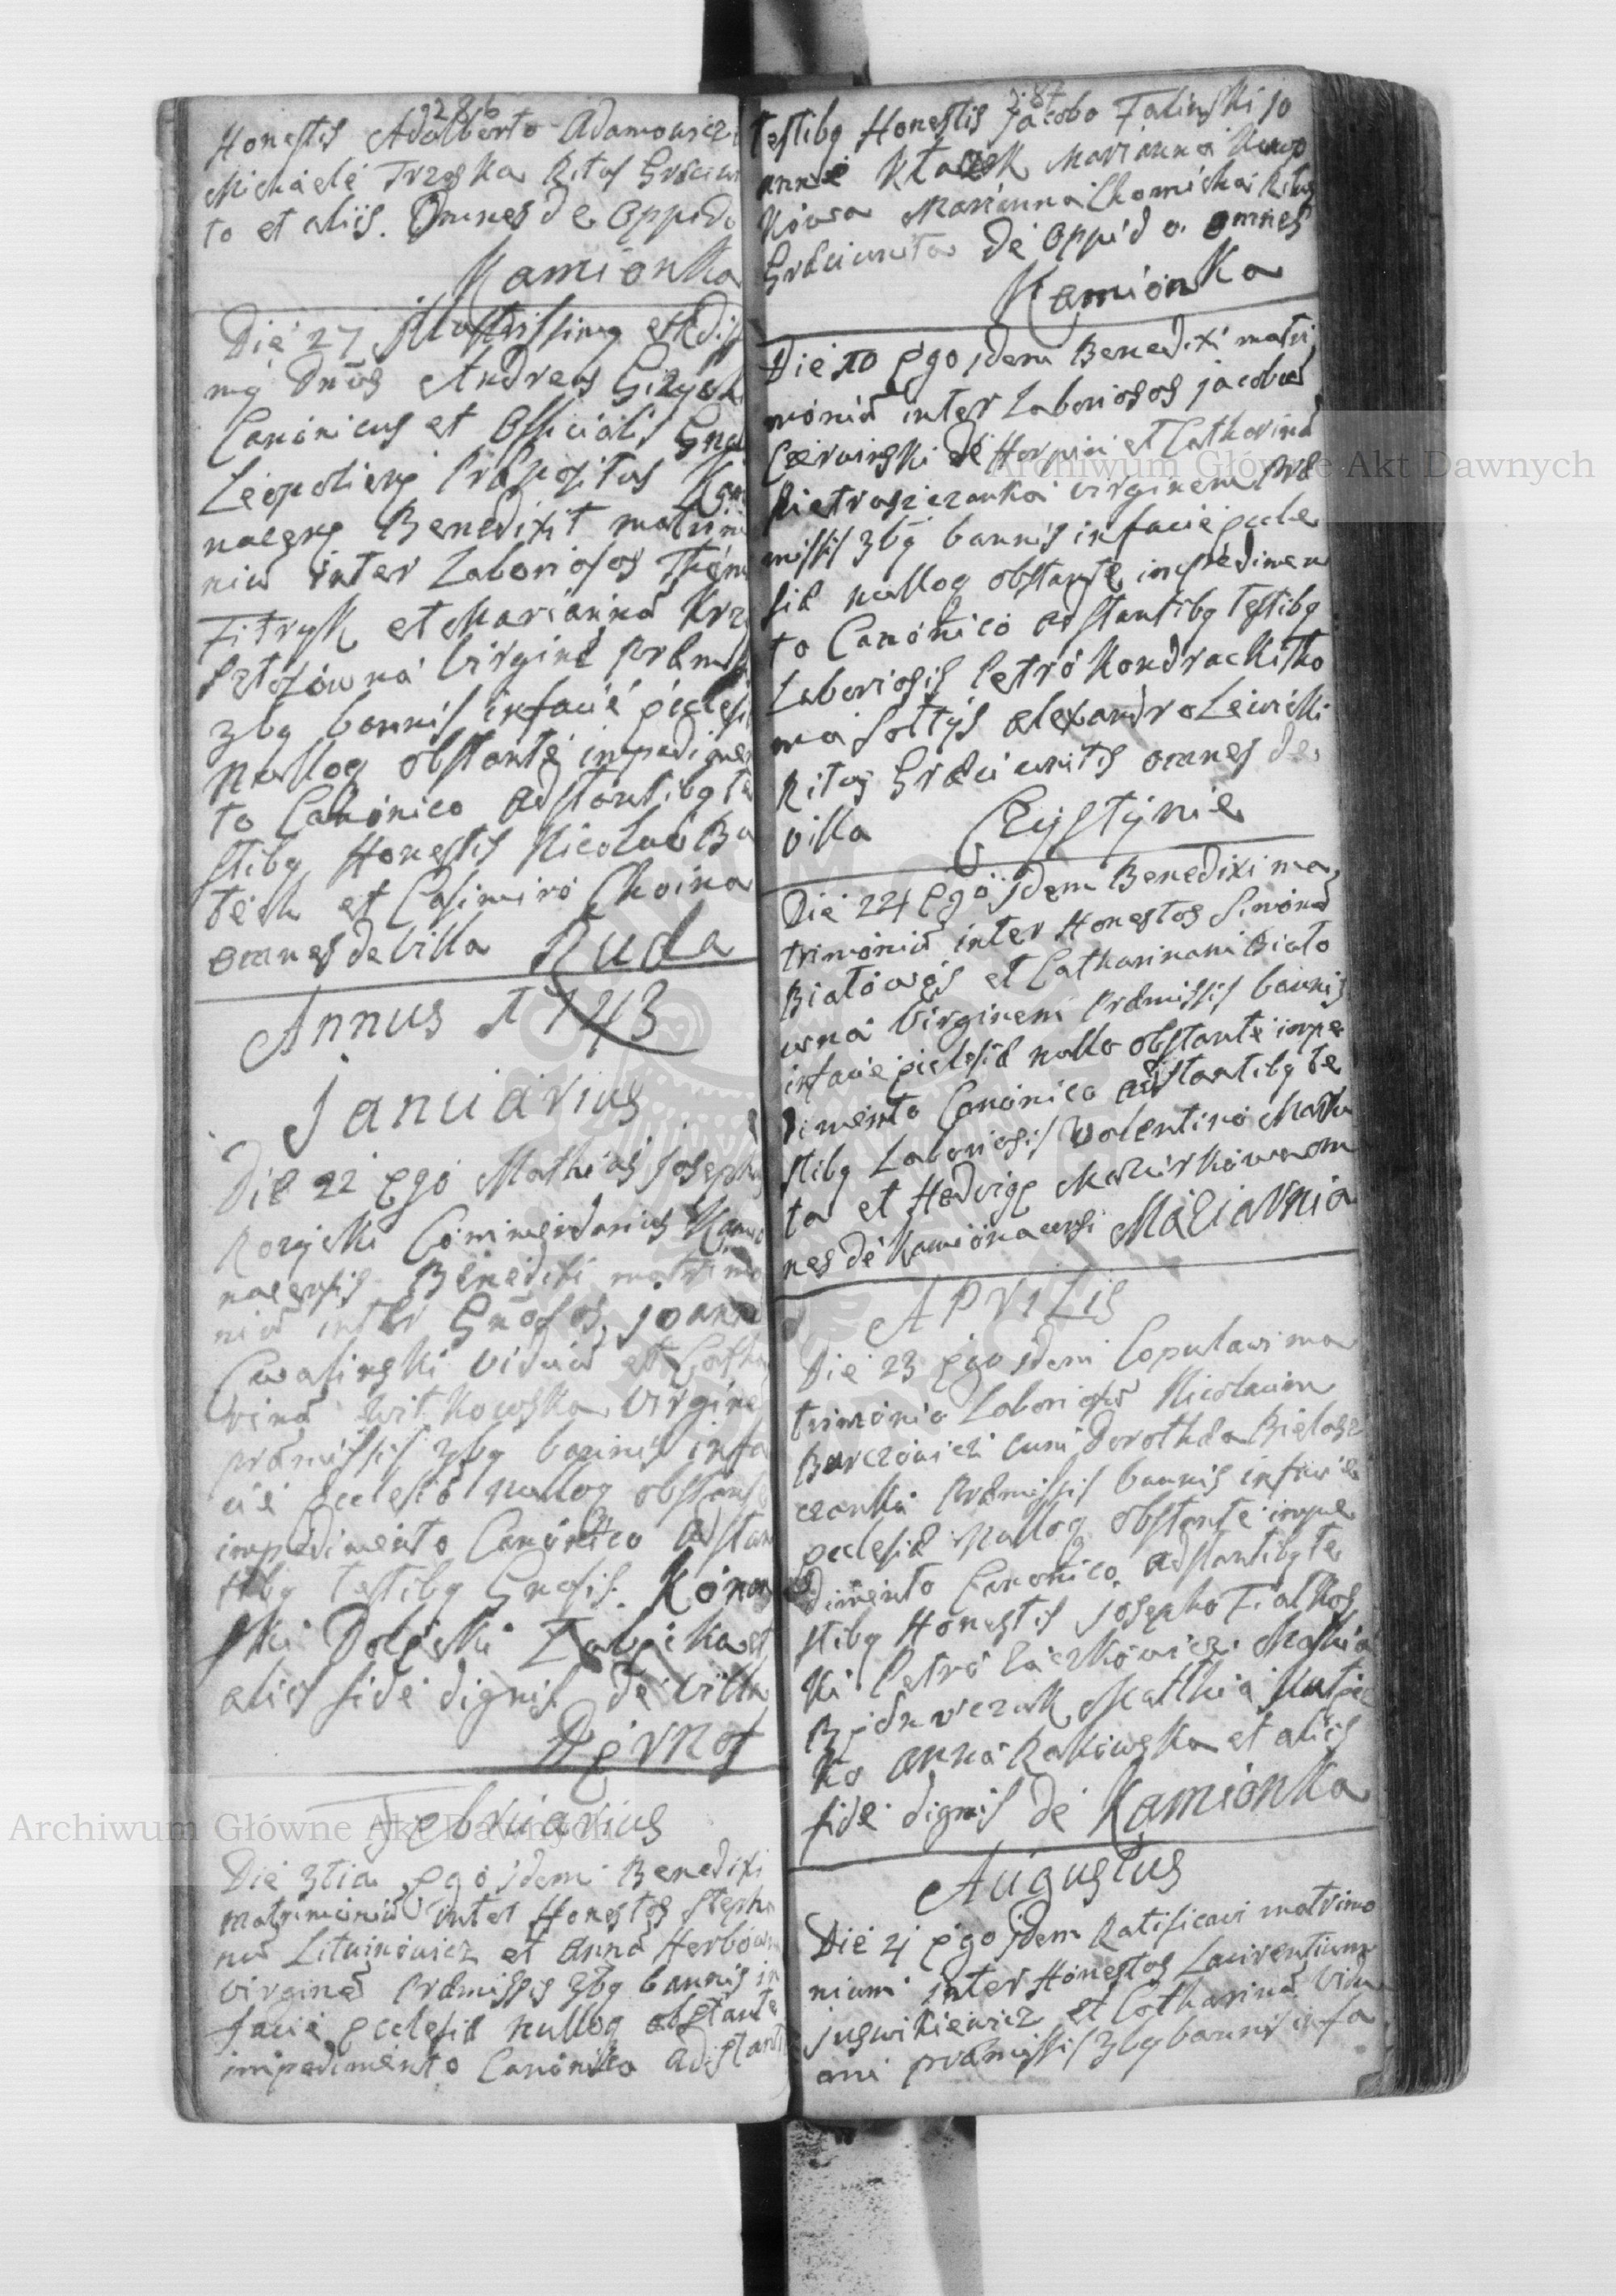 2286
Honestis Adalberto Adamowicz
Michaele Trzeska Ritus Græcuni
to et aliis. Omnes de Oppido
Kamionka
Die 27 Illustrissimq et Rdis
mq Dnūs Andreas Gizycki
Canonicus et Officialis Gnal
Leopoliens Præpositus Kami
nacens Benedixit matrimo
niū inter Laboriosos Thom
Fitryk et Mariannā Krzy
sztofówna Virginē præmiss
3bq bannis infacie Ecclesiæ
nulloq obstante impedimen
to Canonico adstantibq te
stibq Honestis Nicolao Ba
tech et Casimiro Choina
omnes de villa Ruda
Annus 1743
Januarius
Die 22 Ego Mathias Joseph
Rozycki Commendarius Kamio
nacensis Benedixi matrimo
niū inter Gnōsos, Joann
Cwalinski viduū et Catha
rinā Witkowska Virginē
præmissis 3bq bannis infa
cie Ecclesiæ nulloq obstante
impedimento Canonico adstan
tibq testibq Gnosis. Konar
ski Dolęski Zalęska et
aliis fide dignis de villa
Derno
Februarius
Die 3tia Ego idem Benedixi
matrimoniū inter Honestos Stepha
nū Litwinowicz et Annā Herbówn
virginē Præmissis 3bq bannis in
facie Ecclesiæ nulloq obstante
impedimento Canonico adistanti
2287
testibq Honestis Jacobo Falinski Jo
anne Kłacek Marianna
kówa Marianna Chomicka Ritus
Græciunita de Oppido omnes
Kamionka
Die 10 Ego idem Benedixi matri
moniū inter Laboriosos Jacobū
Czerwinski de Horpin et Catharinā
Pietrasiczanka virginem præ
missis 3bq bannis infacie Eccle
siæ nulloq obstante impedimen
to Canonico adstantibq testibq
Laboriosis Petro Kondracki Tho
ma Sołtys Alexandro Lewicki
Ritus Græci unitis omnes de
villa Czystynie
Die 24 Ego idem Benedixi ma
trimoniū inter Honestos Simonē
Białowąs et Catharinam Biało
wna Virginem Præmissis bannis
infacie Ecclesiæ nullo obstante impe
dimento Canonico adstantibq te
stibq Laboriosis Valentino Marku
ta et Hedvige Mazurkowa om
nes de Kamionacensi Maziarnia
Aprilis
Die 23 Ego idem Copulavi ma
trimonio Laboriosū Nicolaum
Burczowicz cum Dorothea Bielasz
czanka Præmissis bannis infacie
Ecclesiæ nulloq obstante impe
dimento Canonico adstantibq te
stibq Honestis Josepho Fiałkos
ki Petro Laczkowicz. Mathia
Matthia Kulpie
ko Anna Rakowska et aliis
fide dignis de Kamionka
Augustus
Die 21 Ego idem Ratificavi matrimo
nium inter Honestos Laurentium
Juswikiewicz et Catharinā vidu
am præmissis 3bq bannis infa
Archiwum Główne Akt Dawnych
Archiwum Główne Akt Dawnych